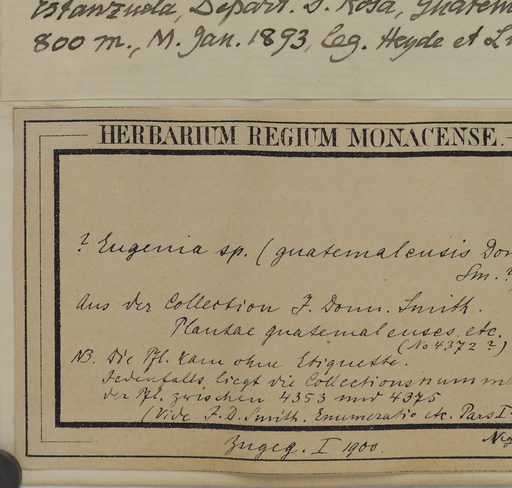 Estanzuela, Depart. S. Rosa, Guatem
800 m., M. Jan. 1893, leg. Heyde et Lu
HERBARIUM REGIUM MONACENSE.
? Eugenia sp. (guatemalensis Don
Sm. ?
Aus der Collection J. Donn. Smith.
Plantae guatemalenses etc.
(No 4372 ?)
NB. Die Pfl. kam ohne Etiquette.
Jedenfalls liegt die Collectionsnumm
der Pfl. zwischen 4353 und 4375
(Vide J. D. Smith. Enumeratio etc. Pars I
Zugeg. I 1900.